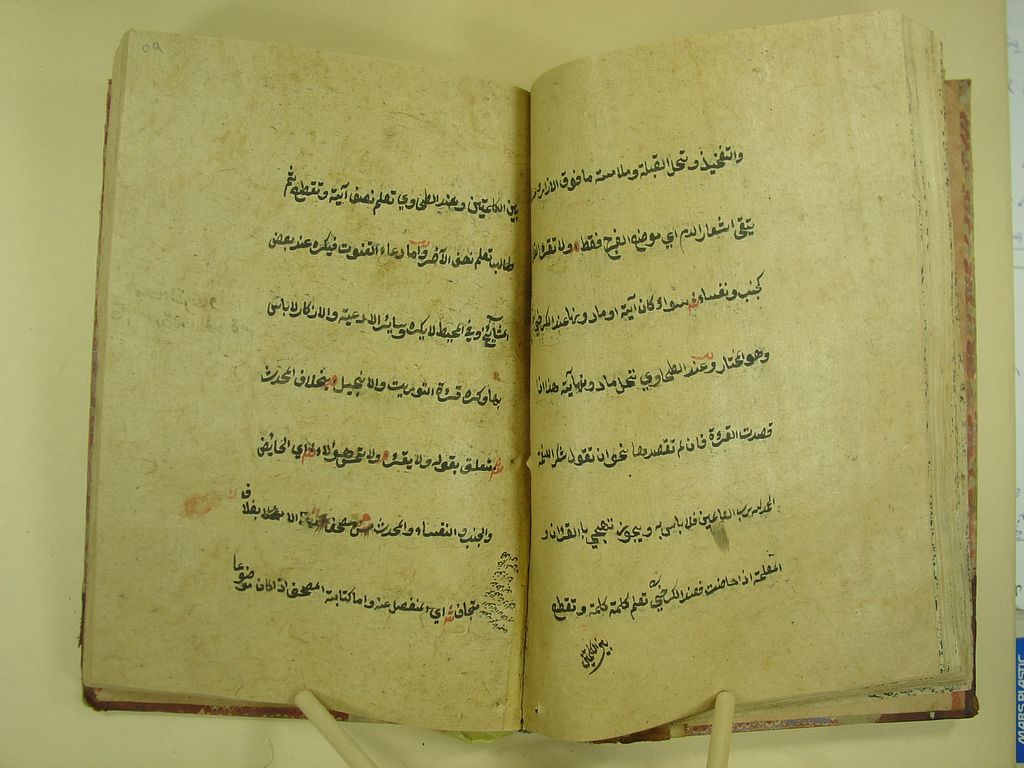 والتفخيذ وتحل القبلة وملامسة ما فوق الازار
يتقى اشعار الدم اي موضع الفرج فقط ولا تقرء
كجنب ونفساء سواء كان آية او ما دونها عند الكرخي
وهو المختار وعند الطحاوي تحل ما دون آية هذا اذا
قصدت القرءة فان لم تقصدها نحو ان تقول شكرا للنعمة
الحمد لله رب العالمين فلا باس به ويجوز تهجي بالقرآن و
المعلمة اذا حاضت فعند الكرخي تعلم كلمة كلمة وتقطع
بين الكلمتين
٥٩
بين الكلمتين وعند الطحاوي تعلم نصف آية وتقطع ثم
تعلم نصف الآخر واما دعاء القنوت فيكره عند بعض
المشايخ وفي المحيط لا يكره وسائر الادعية والاذكار لا باس
بها وكره قرءة التوريت والانجيل بخلاف المحدث
متعلق بقوله ولا يقرء ولا تمس هؤلاء اي الحايض
والجنب والنفساء والمحدث مصحفا الا بغلاف
متجاف اي المنفصل عنه واما كتابة المصحف اذا كان موضوعا
MARSPLASTIC